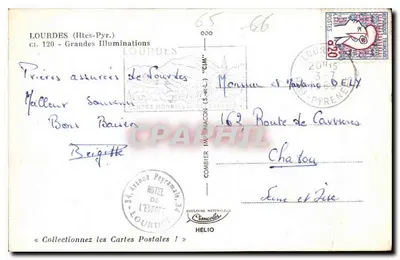 65 - 66
LOURDES (Htes-Pyr.)
CL. 120 - Grandes Illuminations
LOURDES
Prières assurées de Lourdes
Meilleur Souvenir
Bons Baisers
Brigitte
24, Avenue Peyramale, 24
HOTEL
DE
LOURDES
« Collectionnez les Cartes Postales ! »
COMBIER IMP. MACON (S.-et-L.) "CIM"
HELIO
POSTES
0,20
20H15
3-7
PYRENEES
Monsieur et Madame DELY
162 Route de Carrières
Chatou
Seine et Oise
CPAPHIL